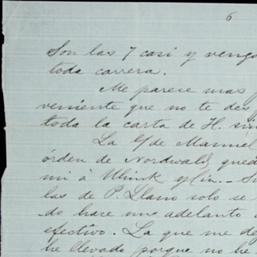 6
Son las 7 casi y vengo
toda carrera.
Me parece mas
veniente que no te des
toda la carta de H. sin
La G/ de Manuel
órden de Nordwald, qued
mi á Ulrick y Cia. Su
las de P. Llano solo se
do hace me adelanto
efectivo. La que me de
he llevado porque no he